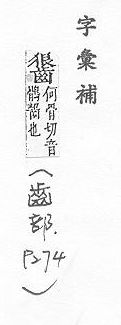 字彙補
何骨切音
鶻齧也
（齒部.P274）